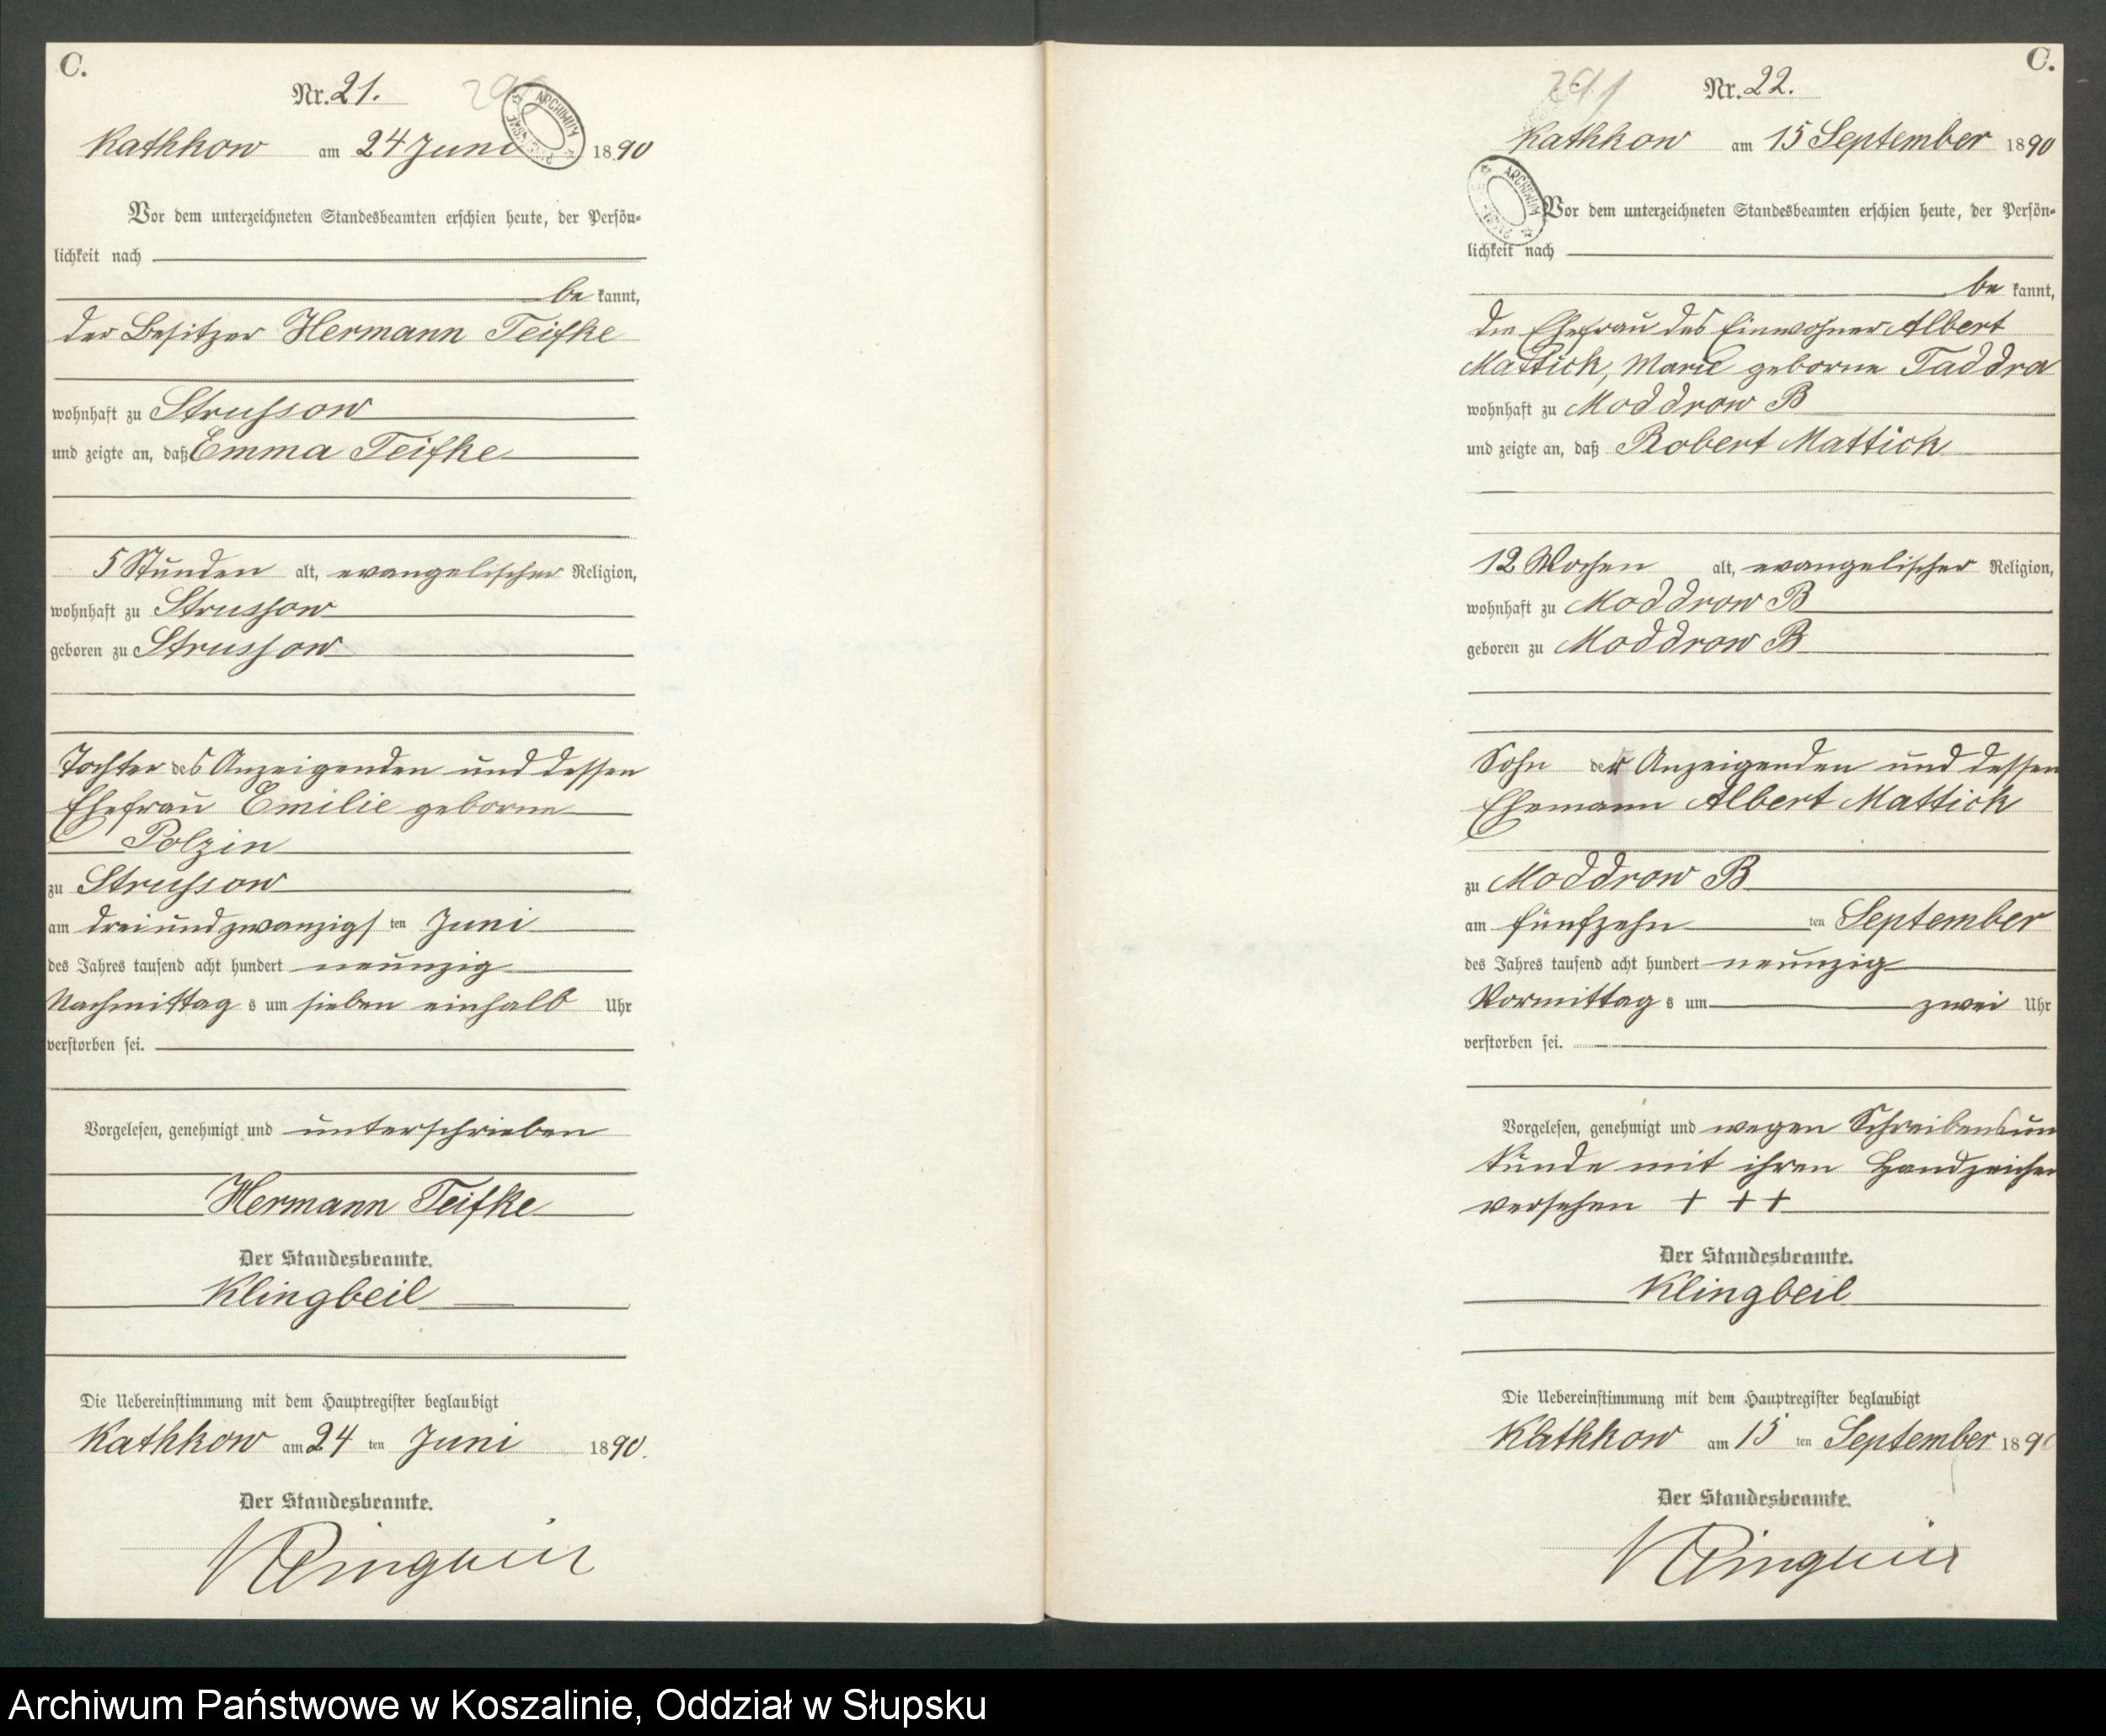 C.
Nr. 21.
Kathkow am 24 Juni 1890
Vor dem unterzeichneten Standesbeamten erschien heute, der Persön=
lichkeit nach
be kannt,
der Besitzer Hermann Teifke
wohnhaft zu Strussow
und zeigte an, daß Emma Teifke
5 Stunden alt, evangelischer Religion,
wohnhaft zu Strussow
geboren zu Strussow
Tochter des Anzeigenden und dessen
Ehefrau Emilie geborne
Polzin
zu Strussow
am dreiundzwanzigsten Juni
des Jahres tausend acht hundert neunzig
Nachmittags um sieben einhalb Uhr
verstorben sei.
Vorgelesen, genehmigt und unterschrieben
Hermann Teifke
Der Standesbeamte.
Klingbeil
Die Uebereinstimmung mit dem Hauptregister beglaubigt
Kathkow am 24 ten Juni 1890.
Der Standesbeamte.
Klingbeil
C.
291
Nr. 22.
Kathkow am 15 September 1890
Vor dem unterzeichneten Standesbeamten erschien heute, der Persön=
lichkeit nach
be kannt,
die Ehefrau des Einwohner Albert
Mattick, Marie geborne Taddra
wohnhaft zu Moddrow B
und zeigte an, daß Robert Mattick
12 Wochen alt, evangelischer Religion,
wohnhaft zu Moddrow B
geboren zu Moddrow B
Sohn der Anzeigenden und dessen
Ehemann Albert Mattick
zu Moddrow B
am fünfzehn ten September
des Jahres tausend acht hundert neunzig
Vormittags um zwei Uhr
verstorben sei.
Vorgelesen, genehmigt und wegen Schreibensun
kunde mit ihren Handzeichen
versehen + + +
Der Standesbeamte.
Klingbeil
Die Uebereinstimmung mit dem Hauptregister beglaubigt
Kathkow am 15 ten September 1890
Der Standesbeamte.
Klingbeil
Archiwum Państwowe w Koszalinie, Oddział w Słupsku